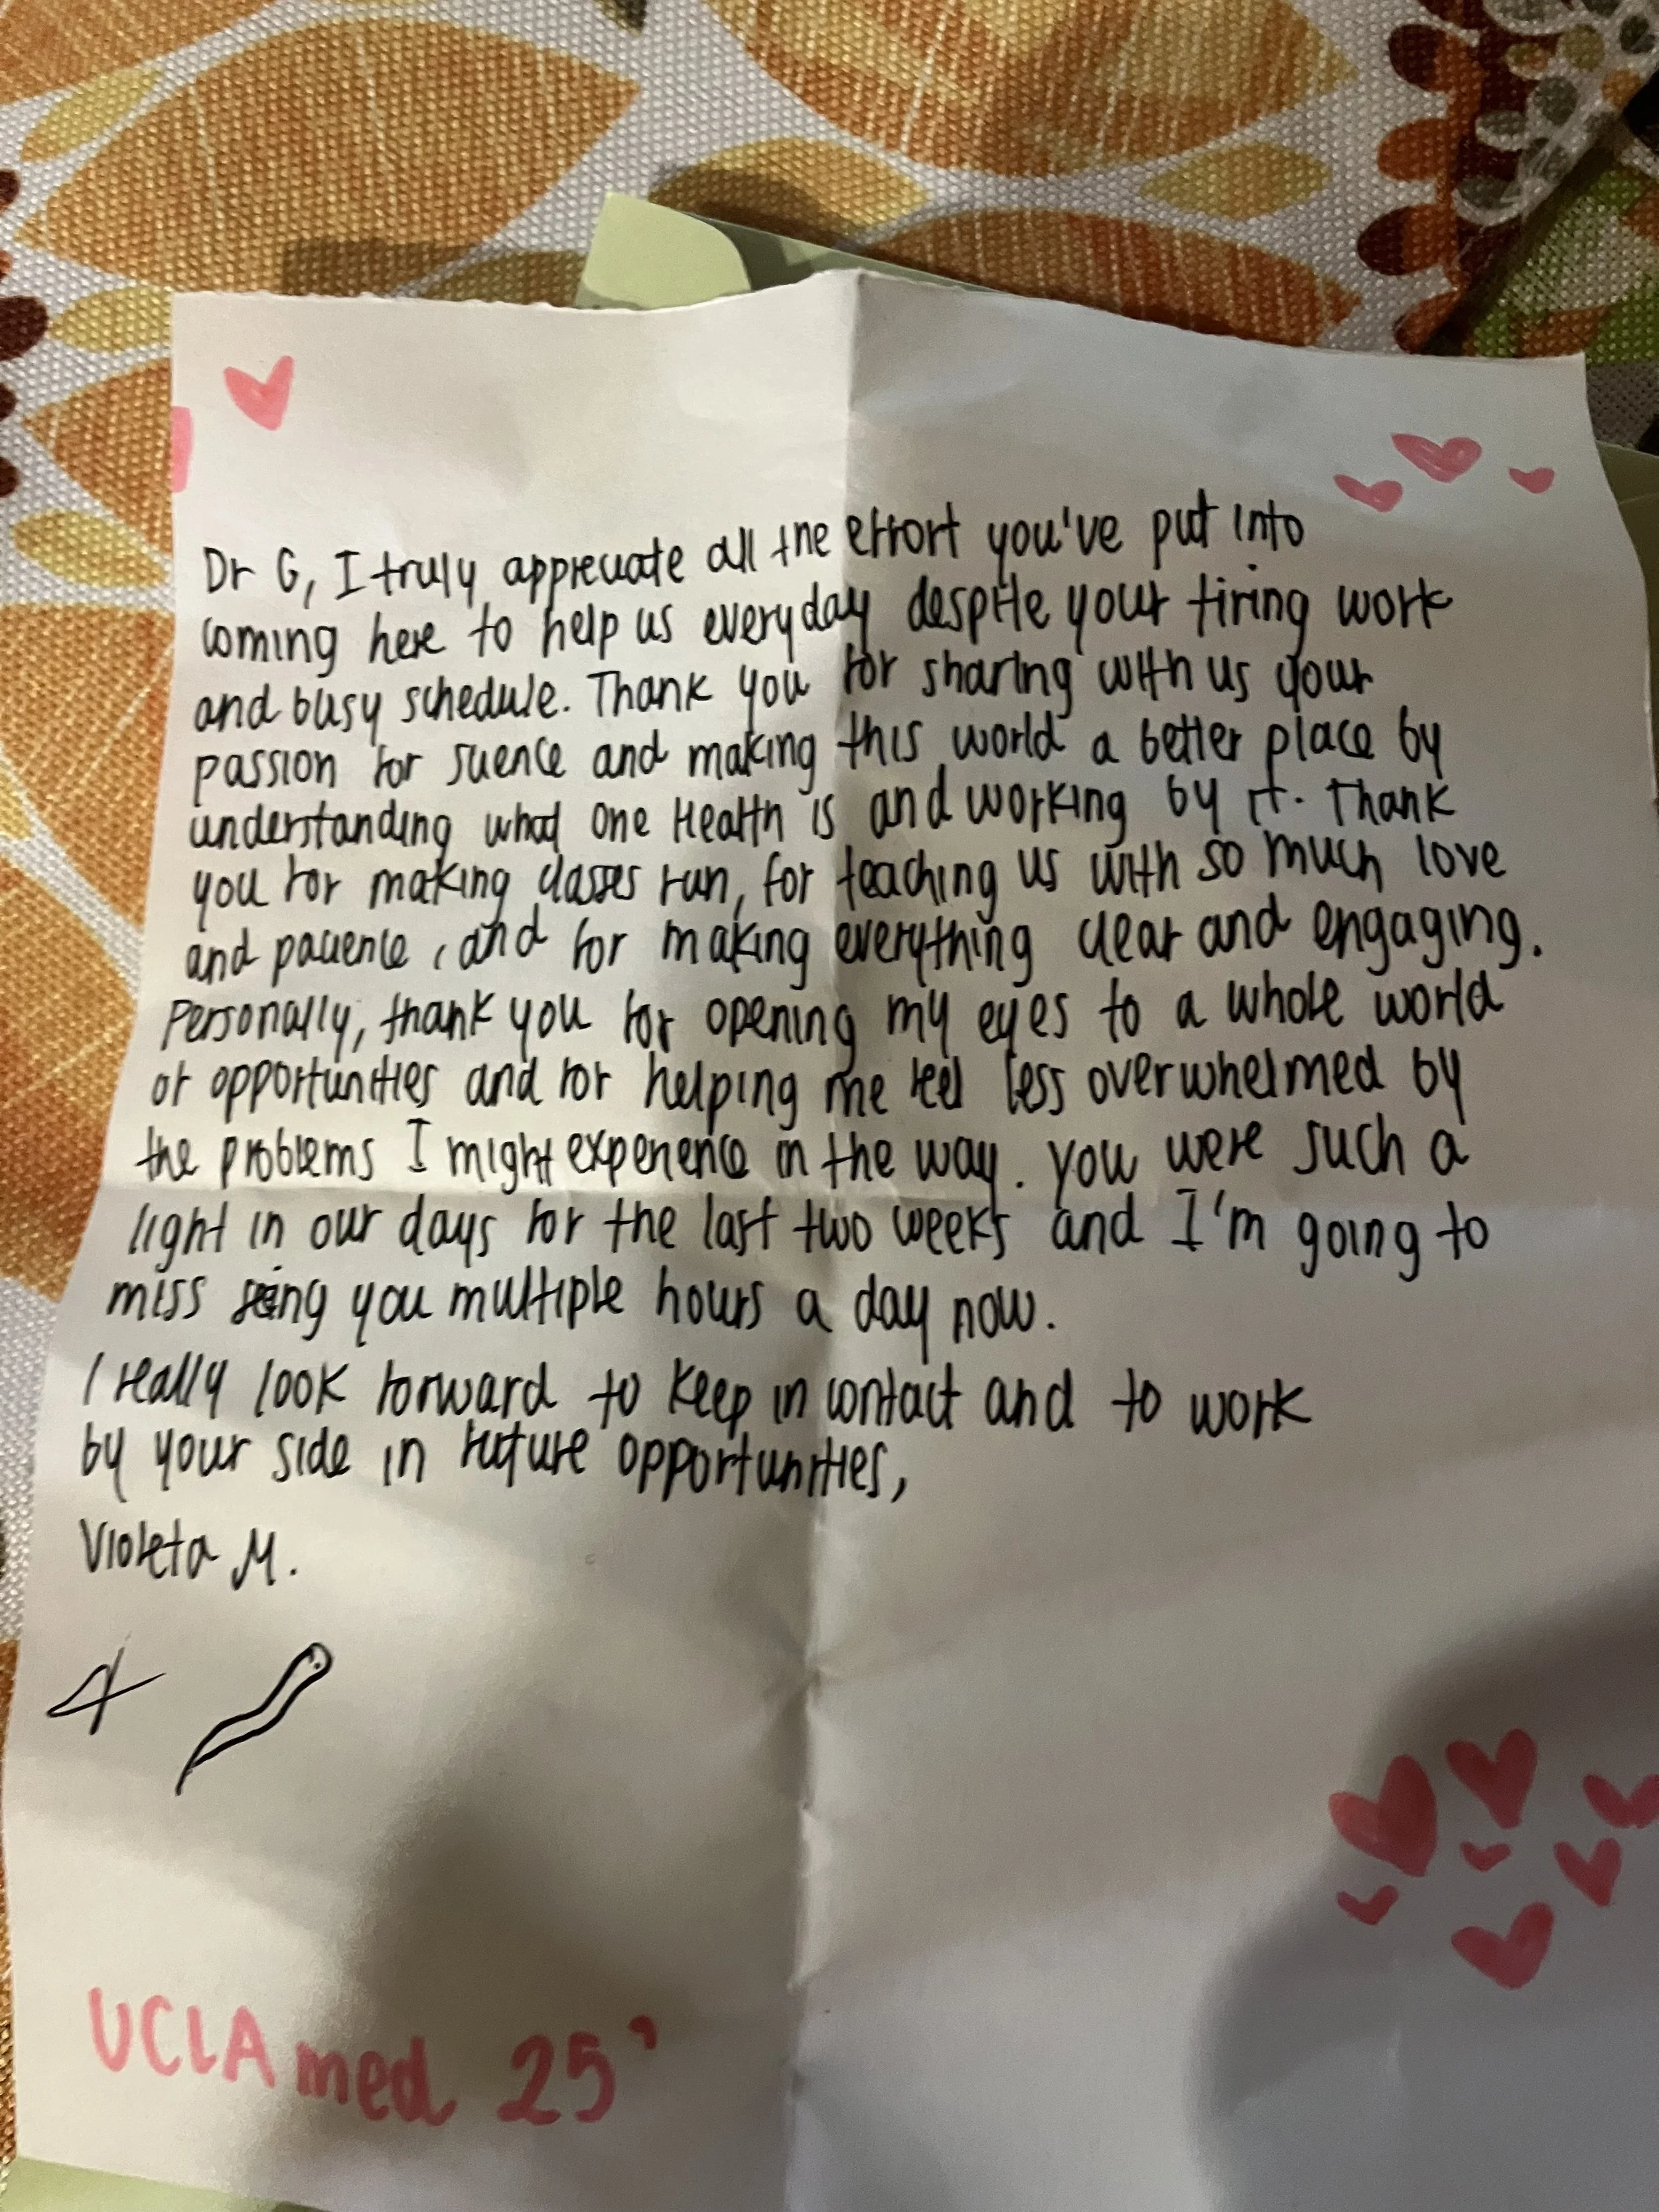 Dr G, I truly appreciate all the effort you've put into
coming here to help us everyday despite your tiring work
and busy schedule. Thank you for sharing with us your
passion for science and making this world a better place by
understanding what One Health is and working by it. Thank
you for making classes run, for teaching us with so much love
and patience, and for making everything clear and engaging.
Personally, thank you for opening my eyes to a whole world
of opportunities and for helping me feel less overwhelmed by
the problems I might experience in the way. You were such a
light in our days for the last two weeks and I'm going to
miss seing you multiple hours a day now.
I really look forward to keep in contact and to work
by your side in future opportunities,
Violeta M.
UCLA med 25'